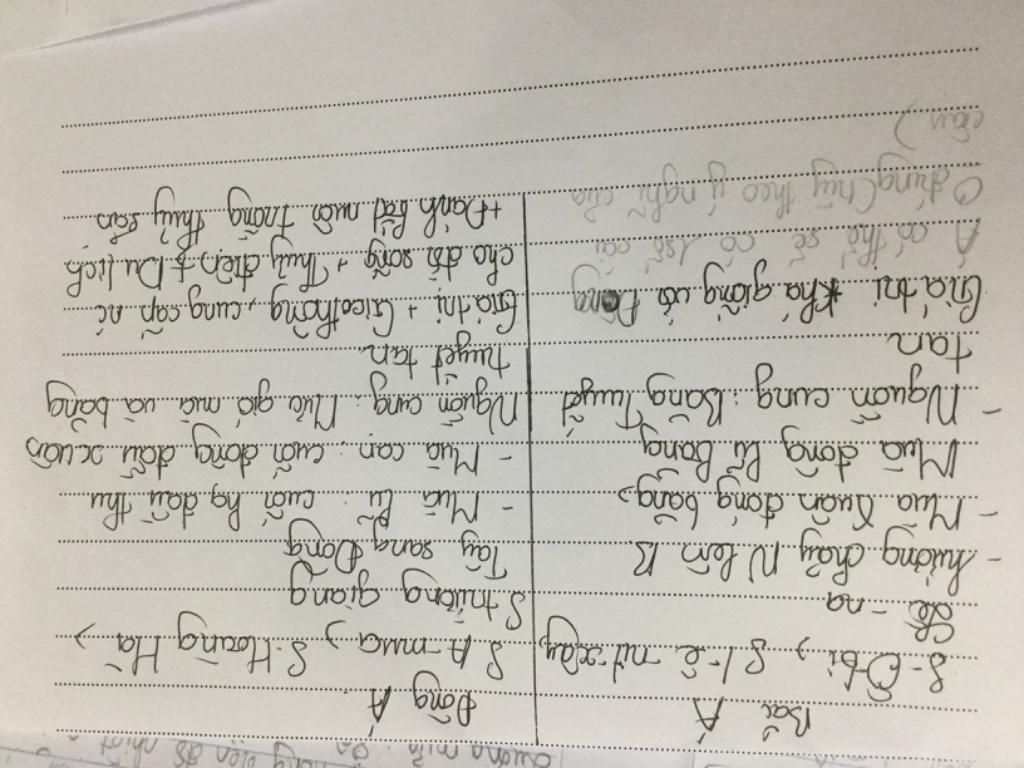 Bắc Á
S-Ô bi, S I-ê nit xây,
- na
- hướng chảy N lên B
- Mùa Xuân đóng băng,
Mùa đông lũ Băng
- Nguồn cung: Băng Tuyết
tan
Giá trị khá giống với Đông
Á có thể sẽ có 1 số cái
0 đúng (tùy theo ý nghĩ của
bạn)
Đông Á
S. A-mua, S. Hoàng Hà,
S trường giang
Tây sang Đông
- Mùa lũ: cuối hạ đầu thu
- Mùa cạn: cuối đông đầu xuân
Nguồn cung: Mưa gió mùa và băng
tuyết tan.
Giá trị + Giao thông, cung cấp nc
cho đời sống + Thủy điện + Du lịch
+ Đánh bắt nuôi trồng thủy sản